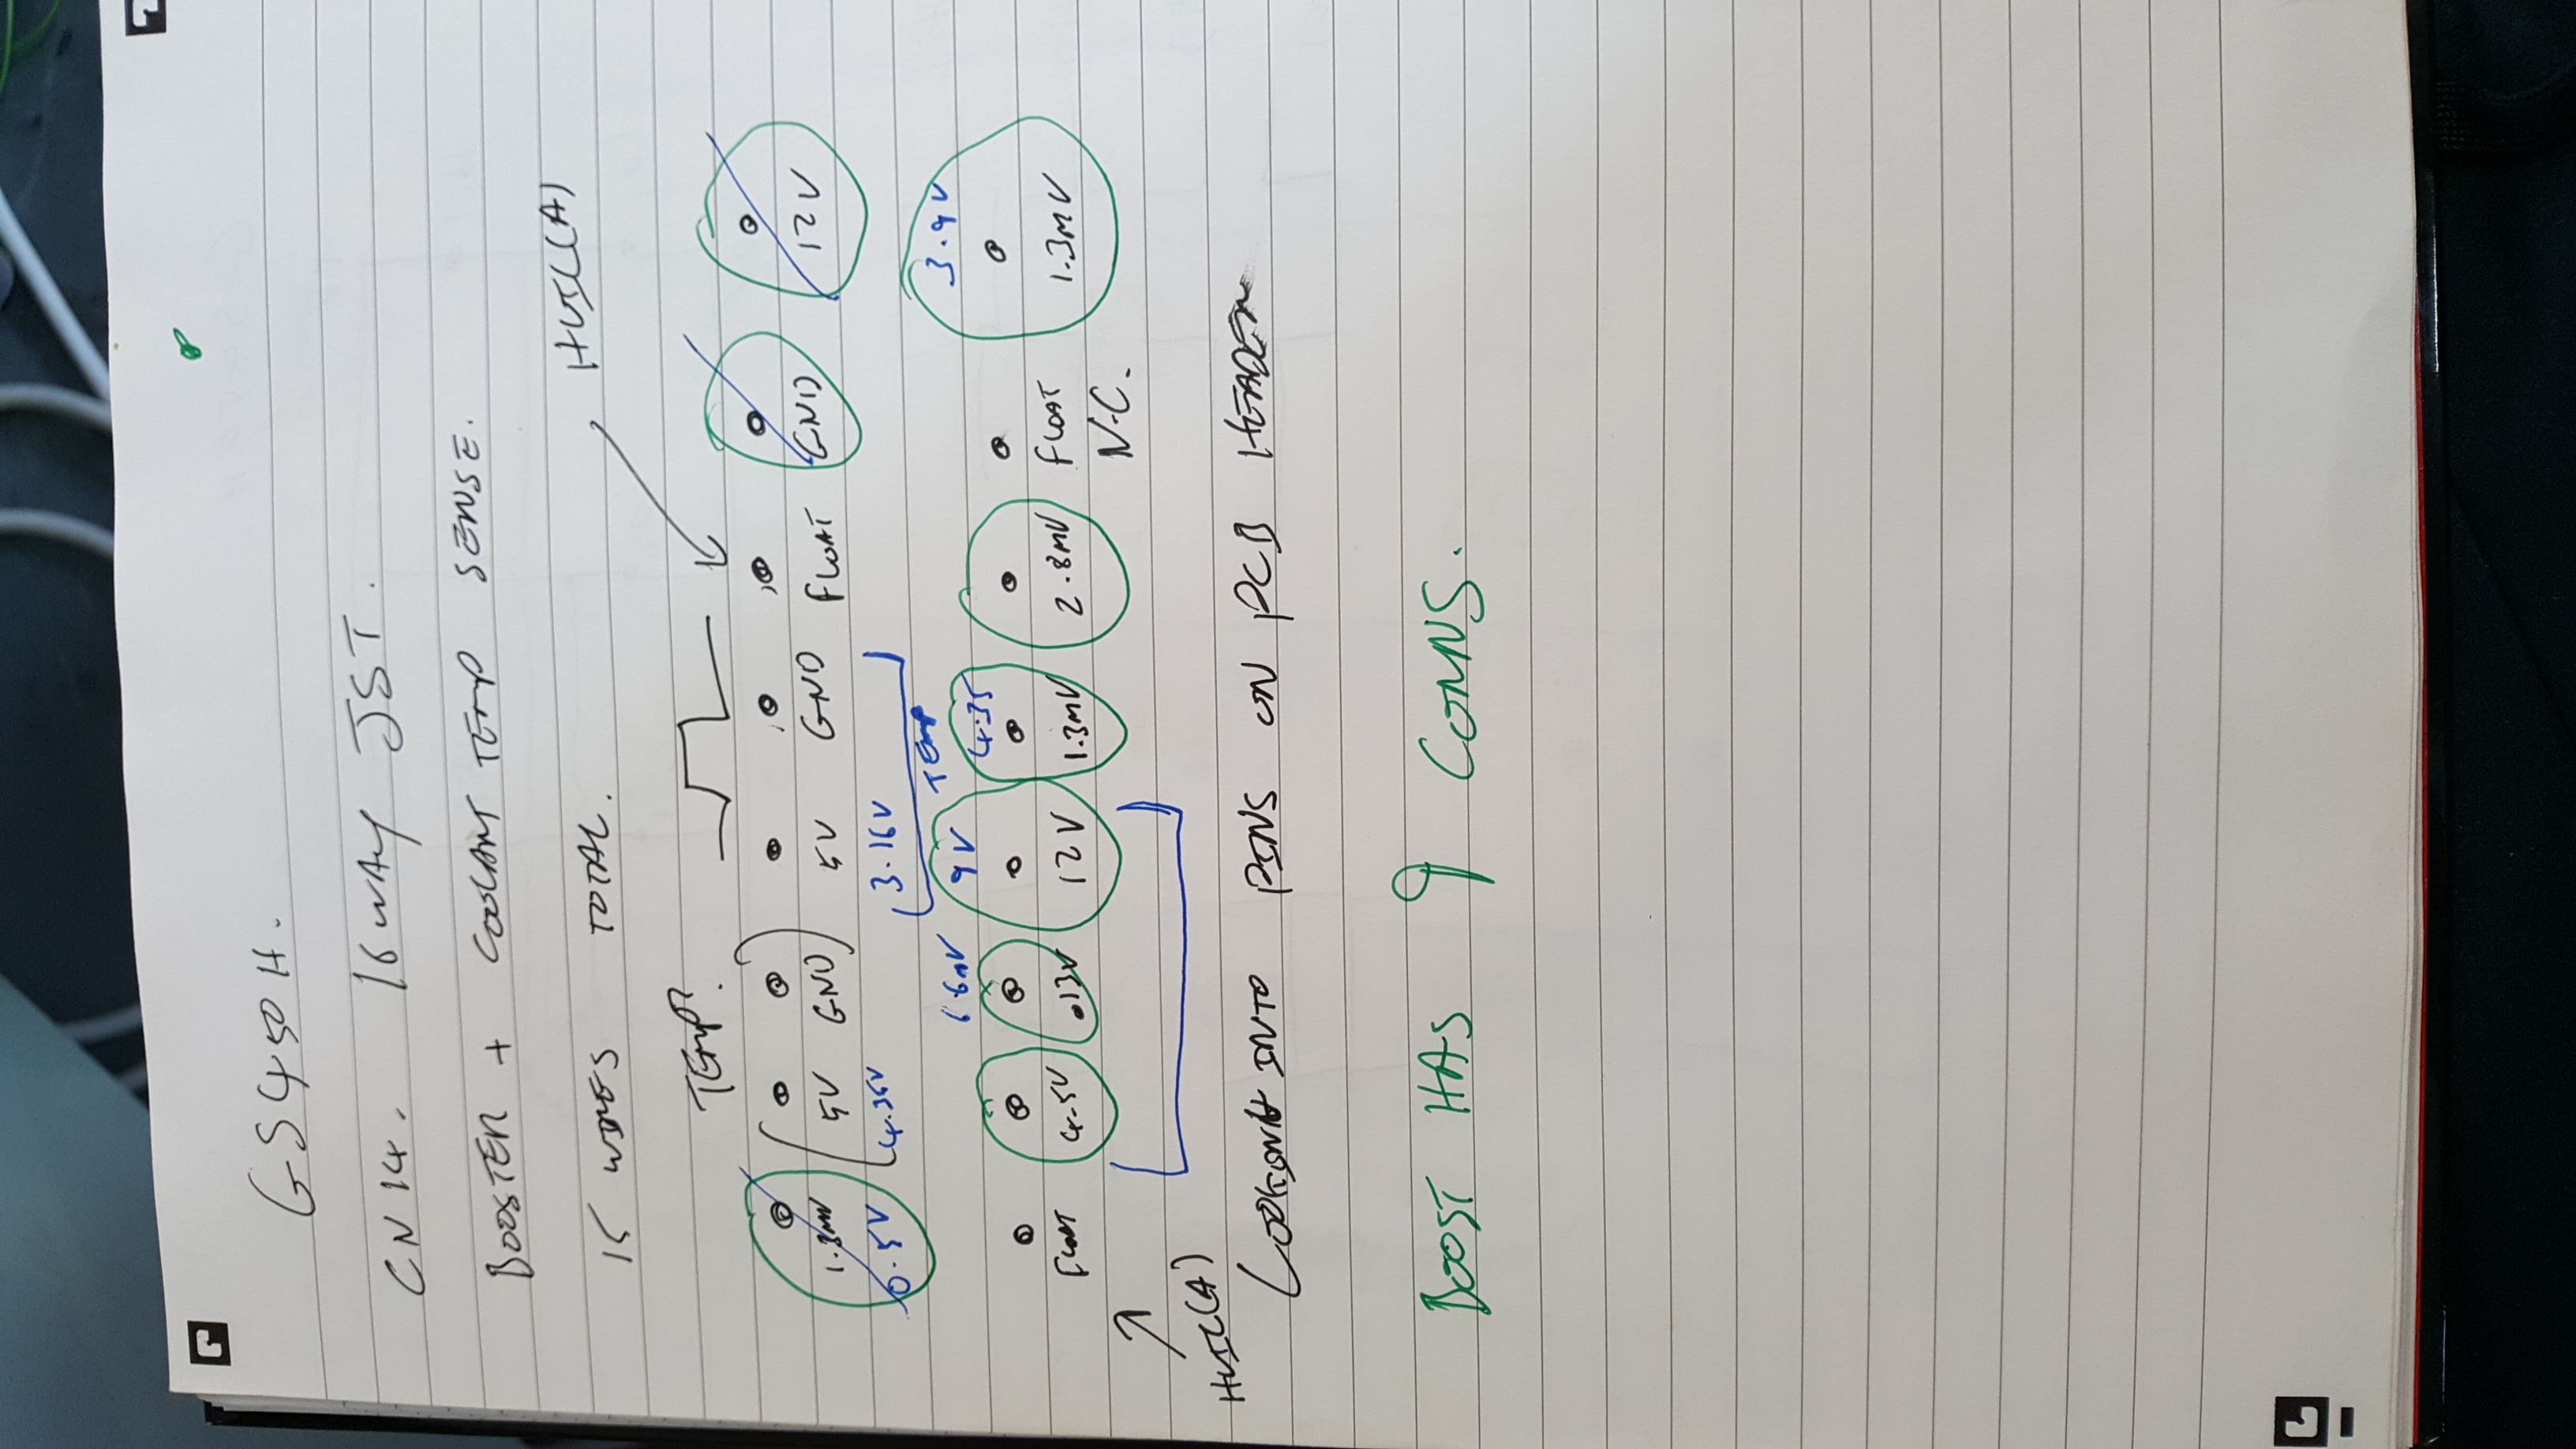 GS450H.
CN14. 16 WAY JST.
BOOSTER + COOLANT TEMP SENSE.
15 WIRES TOTAL. HVIL(A)
TEMP.
1.3MV 5V GND 5V GND FLOAT GND 12V
0.5V 4.35V 3.16V
TEMP
6.6MV 9V 4.35 3.9V
FLOAT 4.5V .013V 12V 1.3MV 2.8MV FLOAT 1.3MV
N.C.
HVIL(A)
LOOKING INTO PINS ON PCB HEADER
BOOST HAS 9 CONNS.